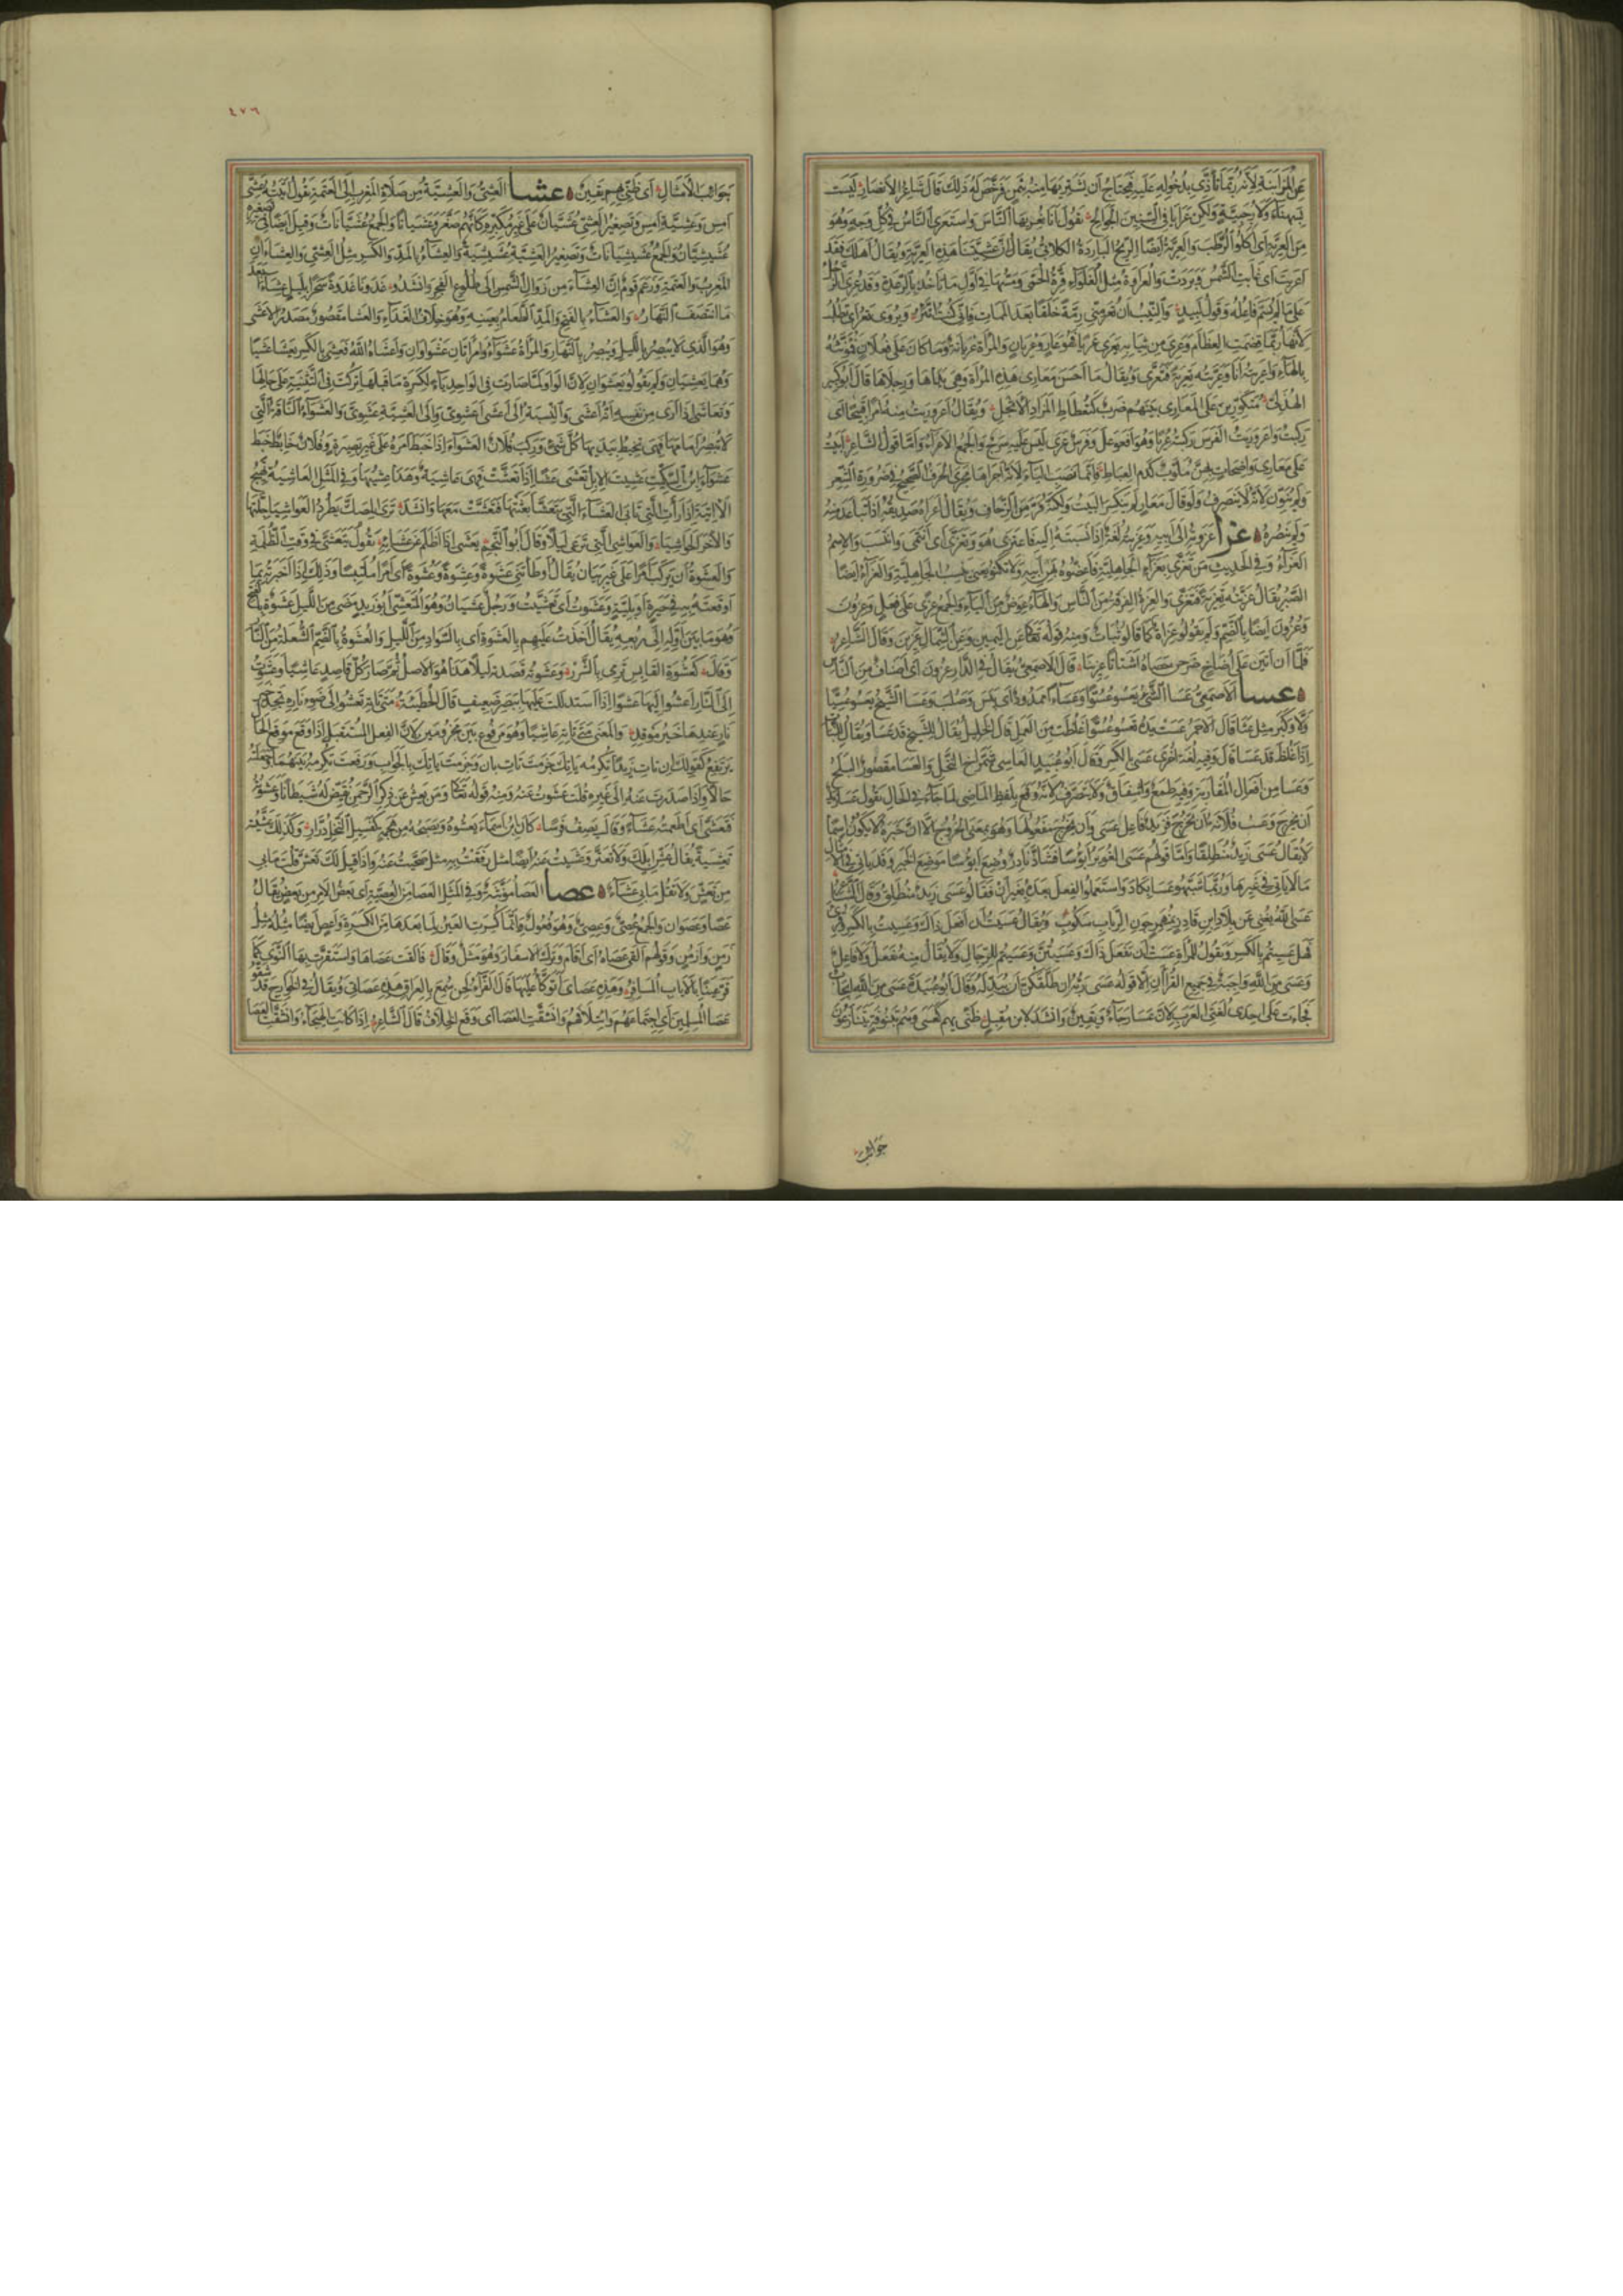 عن المزابنة لأنه ربما تأذى بدخوله عليه فيحتاج أن يشتريها منه بثمن فرخص له ذلك قال شاعر الأنصار ليست
بسنهاء ولا رجبية ولكن عرايا في السنين الجوائح يقول إنا نعريها الناس واستعرى الناس في كل وجه وهو
من العرية أي أكلوا الرطب والعرية أيضا الريح الباردة الكلابي يقال إن عشيتنا هذه العرية ويقال أهلك فقد
أعريت أي غابت الشمس وبردت والعرواء مثل الغلواء قرة الحمى ومسها في أول ما تأخذ بالرعدة وقد عري الرجل
على ما لم يسم فاعله وقول لبيد والنيب إن تعر مني رمة خلقا بعد الممات فإني كنت أتئر ويروى تعرأي تطلب
لأنها ربما قضمت العظام وعري من ثيابه يعرى عريا فهو عار وعريان والمرأة عريانة وما كان على فعلان فمؤنثه
بالهاء وأعريته أنا وعريته تعرية فتعرى ويقال ما أحسن معاري هذه المرأة وهي يداها ورجلاها قال أبو كبير
الهذلي متكورين على المعاري بينهم ضرب كتعطاط المزاد الأثجل ويقال اعروريت منه أمرا قبيحا أي
ركبت واعروريت الفرس ركبته عريا وهو افعوعل وفرس عري ليس عليه سرج والجمع الأعراء وأما قول الشاعر أبيت
على معاري واضحات بهن ملوب كدم العباط فإنما نصب الياء لأنه أجراها مجرى الحرف الصحيح في ضرورة الشعر
ولم ينون لأنه لا ينصرف ولو قال معار لم ينكسر البيت ولكنه فر من الزحاف ويقال أعراه صديقه إذا تباعد منه
ولم ينصره عزا عزوته إلى أبيه وعزيته لغة إذا نسبته إليه فاعتزى هو وتعزى أي انتمى وانتسب والاسم
العزاء وفي الحديث من تعزى بعزاء الجاهلية فأعضوه بهن أبيه ولا تكنوا يعني بنسب الجاهلية والعزاء أيضا
الصبر يقال عزيته تعزية فتعزى والعزة الفرقة من الناس والهاء عوض من الياء والجمع عزى على فعل وعزون
وعزون أيضا بالضم ولم يقولوا عزات كما قالوا ثبات ومنه قوله تعالى عن اليمين وعن الشمال عزين وقال الشاعر
فلما أن أتين على أضاخ ضرحن حصاه أشتاتا عزينا قال الأصمعي يقال في الدار عزون أي أصناف من الناس
عسا الأصمعي عسا الشيء يعسو عسوا وعساء ممدود أي يبس وصلب وعسا الشيخ يعسو عسيا
ولى وكبر مثل عتا قال الأحمر عست يده تعسو عسوا غلظت من العمل قال الخليل يقال للشيخ قد عسا ويقال للنبات
إذا غلظ قد عسا قال وفيه لغة أخرى عسي بالكسر وقال أبو عبيد العاسي شمراخ النخل والعسا مقصور البلح
وعسا من أفعال المقاربة وفيه طمع وإشفاق ولا يتصرف لأنه وقع بلفظ الماضي لما جاء في الحال تقول عسى زيد
أن يخرج وعست فلانة أن تخرج فزيد فاعل عسى وأن يخرج مفعولها وهو بمعنى الخروج إلا أن خبره لا يكون اسما
لا يقال عسى زيد منطلقا وأما قولهم عسى الغوير أبؤسا فشاذ نادر وضع أبؤسا موضع الخبر وقد يأتي في الأمثال
ما لا يأتي في غيرها وربما شبهوا عسا بكاد واستعملوا الفعل بعده بغير أن فقالوا عسى زيد ينطلق وقال الشاعر
عسى الله يغني عن بلاد ابن قادر بمنهمر جون الرباب سكوب ويقال عسيت أن أفعل ذاك وعسيت بالكسر وقرئ
فهل عسيتم بالكسر وتقول للمرأة عست أن تفعل ذاك وعسيتن وعسيتم للرجال ولا يقال منه يفعل ولا فاعل
وعسى من الله واجبة في جميع القرآن إلا قوله عسى ربه إن طلقكن أن يبدله وقال أبو عبيدة عسى من الله إيجاب
فجاءت على إحدى لغتي العرب لأن عسا رجاء ويقين وأنشد لابن مقبل ظني بهم كعسى وهم بتنوفة يتنازعون
جوائب
٤٧٦
جوائب الأمثال أي ظني بهم يقين عشا العشي والعشية من صلاة المغرب إلى العتمة تقول أتيته عشي
أمس وعشية أمس وتصغير العشي عشيان على غير مكبره كأنهم صغروا عشيانا والجمع عشيانات وقيل أيضا في تصغيره
عشيشيان والجمع عشيشيانات وتصغير العشية عشيشية والعشاء بالمد والكسر مثل العشي والعشاءان
المغرب والعتمة وزعم قوم أن العشاء من زوال الشمس إلى طلوع الفجر وأنشدوا غدونا غدوة سحرا بليل عشاء بعد
ما انتصف النهار والعشاء بالفتح والمد الطعام بعينه وهو خلاف الغداء والعشا مقصور مصدر الأعشى
وهو الذي لا يبصر بالليل ويبصر بالنهار والمرأة عشواء وامرأتان عشواوان وأعشاه الله فعشي بالكسر يعشى عشا
وهما يعشيان ولم يقولوا يعشوان لأن الواو لما صارت في الواحد ياء لكسرة ما قبلها تركت في التثنية على حالها
وتعاشى إذا أرى من نفسه أنه أعشى والنسبة إلى أعشى أعشوي وإلى العشية عشوي والعشواء الناقة التي
لا تبصر أمامها فهي تخبط بيديها كل شيء وركب فلان العشواء إذا خبط أمره على غير بصيرة وفلان خابط خبط
عشواء ابن السكيت عشيت الإبل تعشى عشا إذا تعشت فهي عاشية وهذا عشيها وفي المثل العاشية تهيج
الآبية إذا رأت التي تأبى العشاء التي تتعشا تبعتها فتعشت معها وأنشد ترى المصك يطرد العواشيا جلتها
والأخر الحواشيا والعواشي التي ترعى ليلا وقال أبو النجم يعشى إذا أظلم عن عشائه يقول يتعشى في وقت الظلمة
والعشوة أن يركب أمرا على غير بيان يقال أوطأتني عشوة وعشوة وعشوة أي أمرا ملتبسا وذلك إذا أخبرته بما
أوقعته به في حيرة أو بلية وعشوت أي تعشيت ورجل عشيان وهو المتعشي أبو زيد مضى من الليل عشوة بالفتح
وهو ما بين أوله إلى ربعه يقال أخذت عليهم بالعشوة أي بالسواد من الليل والعشوة بالضم الشعلة من النار
وقال كعشوة القابس ترمي بالشرر وعشوته قصدته ليلا هذا هو الأصل ثم صار كل قاصد عاشيا وعشوت
إلى النار أعشو إليها عشوا إذا استدللت عليها ببصر ضعيف قال الحطيئة متى تأته تعشو إلى ضوء ناره تجد خير
نار عندها خير موقد والمعنى متى تأته عاشيا وهو مرفوع بين مجزومين لأن الفعل المستقبل إذا وقع موقع الحال
يرتفع كقولك إن تأت زيدا تكرمه يأتك جزمت تأت بإن وجزمت يأتك بالجواب ورفعت تكرمه بينهما وجعلته
حالا وإذا صدرت عنه إلى غيره قلت عشوت عنه ومنه قوله تعالى ومن يعش عن ذكر الرحمن نقيض له شيطانا وعشوته
فتعشى أي أطعمته عشاء وقال يصف فرسا كان ابن أسماء يعشوه ويصبحه من هجمة كفسيل النخل درار وكذلك عشيته
تعشية يقال عش إبلك ولا تغتر وعشيت عنه أيضا مثل رفقت به مثل ضحيت عنه وإذا قيل لك تعش قلت ما بي
من تعش ولا تقل ما بي عشاء عصا العصا مؤنثة وفي المثل العصا من العصية أي بعض الأمر من بعض يقال
عصا وعصوان والجمع عصي وعصي وهو فعول وإنما كسرت العين لما بعدها من الكسرة وأعص أيضا مثله مثل
زمن وأزمن وقولهم ألقى عصاه أي أقام وترك الأسفار وهو مثل وقال فألقت عصاها واستقرت بها النوى كما
قر عينا بالإياب المسافر وهذه عصاي أتوكأ عليها قال الفراء أول لحن سمع بالعراق هذه عصاتي ويقال في الخوارج قد شقوا
عصا المسلمين أي اجتماعهم وائتلافهم وانشقت العصا أي وقع الخلاف قال الشاعر إذا كانت الهيجاء وانشقت العصا